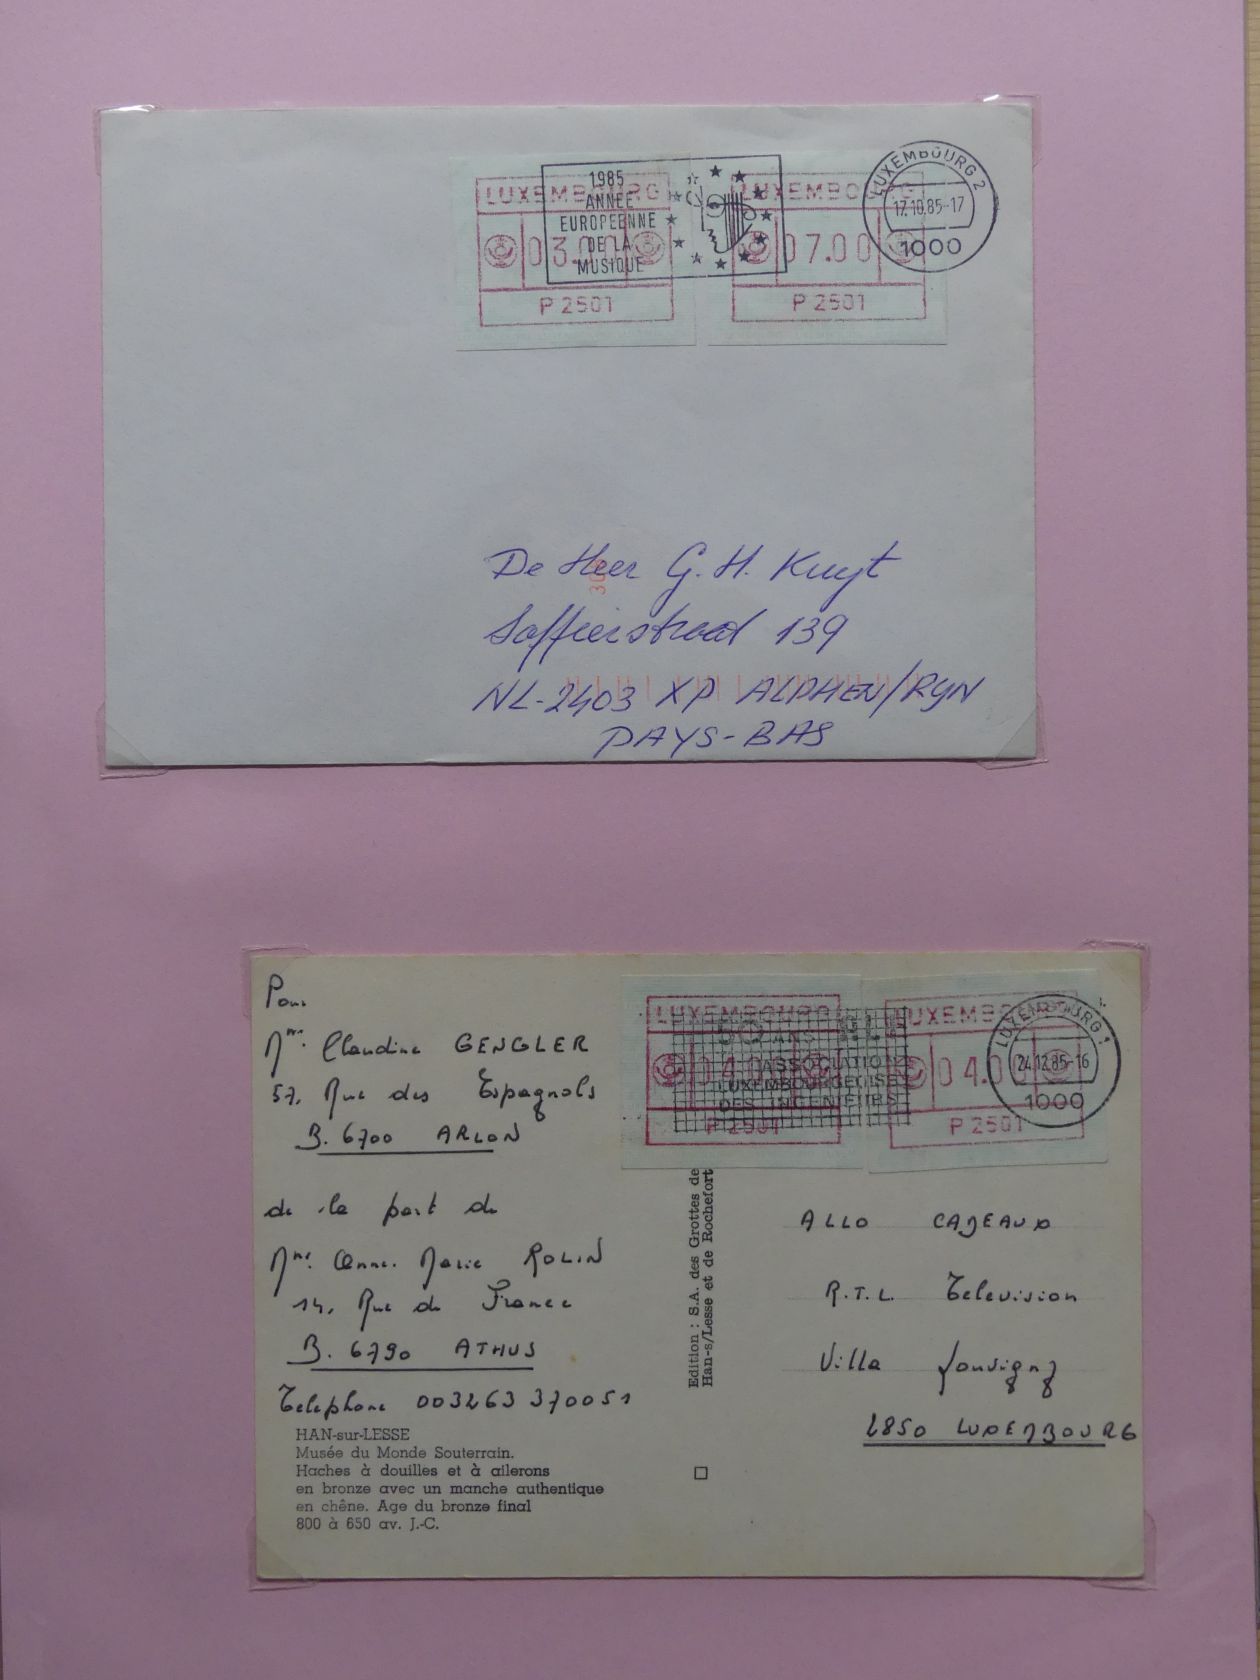 LUXEMBOURG
03.00
P 2501
1985
ANNÉE
EUROPÉENNE
DE LA
MUSIQUE
LUXEMBOURG
07.00
P 2501
LUXEMBOURG 2
17.10.85-17
1000
De Heer G. H. Kuyt
Saffierstraat 139
NL-2403 XP ALPHEN/RYN
PAYS-BAS
Pour
Mme Claudine GENGLER
57, Rue des Espagnols
B. 6700 ARLON
de la part de
Mme Anne. Marie ROLIN
14, Rue de France
B. 6790 ATHUS
Telephone 003263 370051
HAN-sur-LESSE
Musée du Monde Souterrain.
Haches à douilles et à ailerons
en bronze avec un manche authentique
en chêne. Age du bronze final
800 à 650 av. J.-C.
Edition : S.A. des Grottes de
Han-s/Lesse et de Rochefort
LUXEMBOURG
04.00
P 2501
ANS
ASSOCIATION
LUXEMBOURGEOISE
DES INGENIEURS
LUXEMBOURG
04.00
P 2501
LUXEMBOURG 1
24.12.85-16
1000
ALLO CADEAUX
R.T.L. Television
Villa Louvigny
2850 LUXEMBOURG